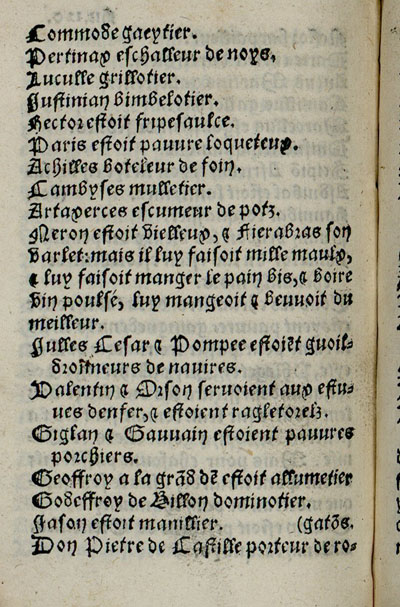 Commode gaeytier.
Pertinax eschalleur de noys.
Luculle grillotier.
Justinian bimbelotier.
Hector estoit fripesaulce.
Paris estoit pauure loqueteux.
Achilles boteleur de foin.
Cambyses mulletier.
Artaxerces escumeur de potz.
Neron estoit vielleux, & Fierabras son
varlet: mais il luy faisoit mille maulx,
& luy faisoit manger le pain bis, & boire
vin poulsé, luy mangeoit & beuuoit du
meilleur.
Julles Cesar & Pompee estoiẽt guoil-
dronneurs de nauires.
Valentin & Orson seruoient aux estu-
ues denfer, & estoient ragletorelz.
Giglan & Gauuain estoient pauures
porchiers.
Geoffroy a la grãd dẽt estoit allumetier
Godeffroy de Billon dominotier.
Jason estoit manillier. (gatõs.
Don Pietre de Castille porteur de ro-